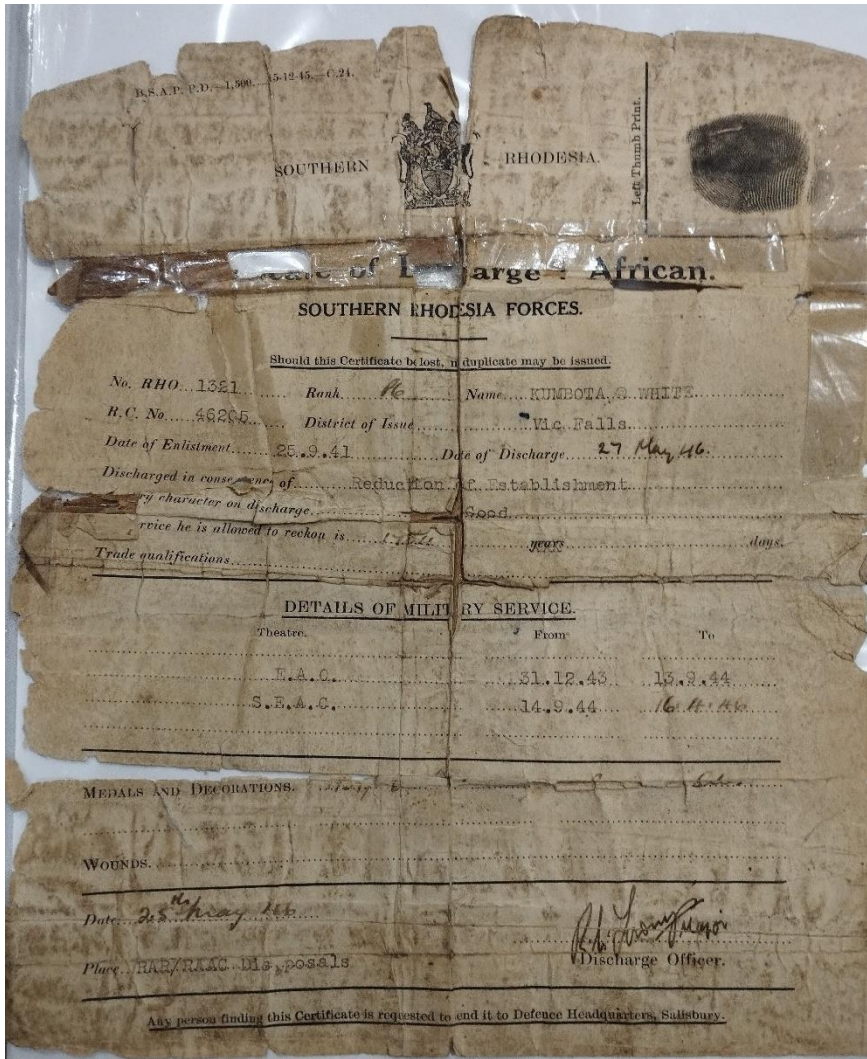 B.S.A.P. P.D.—1,500. 15-12-45.—C.24.
Left Thumb Print.
SOUTHERN RHODESIA.
of arge : African.
SOUTHERN RHODESIA FORCES.
Should this Certificate be lost, n duplicate may be issued.
No. RHO 1321 Rank Name KUMBOTA @ WHITE
R.C. No. 46205 District of Issue Vic Falls
Date of Enlistment 25.9.41 Date of Discharge 27 May 46.
Discharged in conse ence of Reduction of Establishment
ry character on discharge Good
rvice he is allowed to reckon is years days.
Trade qualifications
DETAILS OF MILIT RY SERVICE.
Theatre. From To
E.A.C. 31.12.43 13.9.44
S.E.A.C. 14.9.44 16.4.46
MEDALS AND DECORATIONS.
WOUNDS.
Date 25th May 46
Discharge Officer.
Place RAR/RAAC Dis,posals
Any person finding this Certificate is requested to end it to Defence Headquarters, Salisbury.